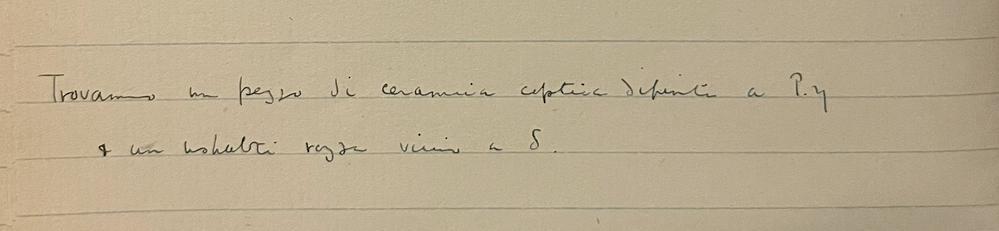 Trovammo un pezzo di ceramica coptica dipinta a P.y
& un ushabti rozzo vicino a δ.